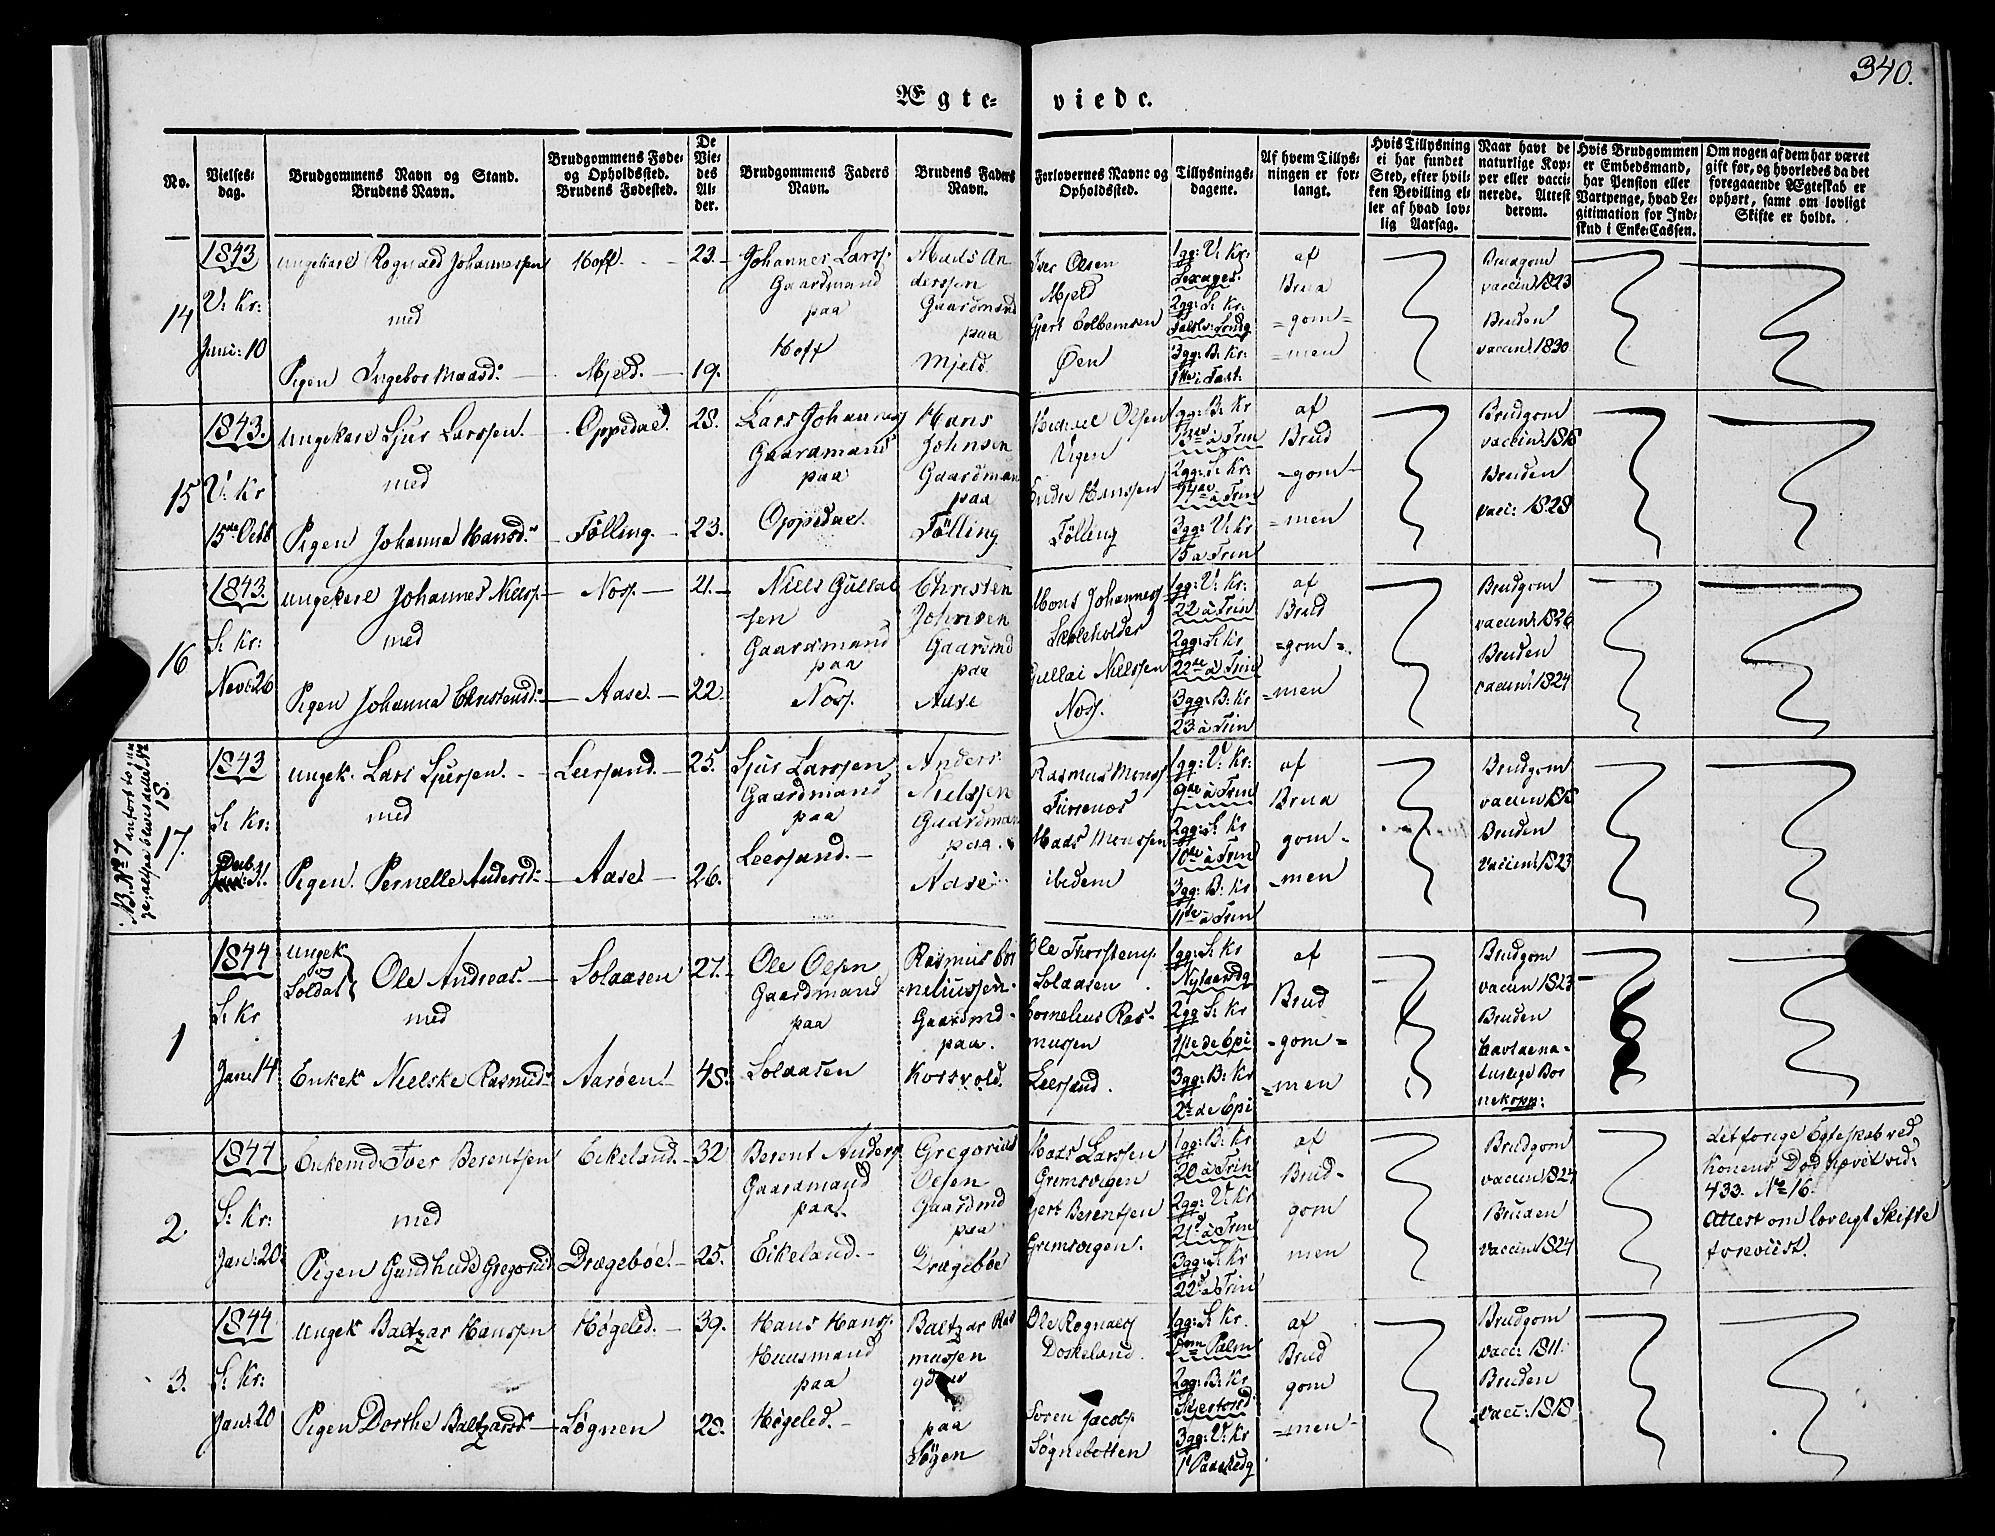 340.
Ægte-
viede.
No.
Vielses-
dag.
Brudgommens Navn og Stand.
Brudens Navn.
Brudgommens Føde-
og Opholdssted.
Brudens Fødested.
De
Vie-
des
Al-
der.
Brudgommens Faders
Navn.
Brudens Faders
Navn.
Forlovernes Navne og
Opholdssted.
Tillysnings-
dagene.
Af hvem Tillys-
ningen er for-
langt.
Hvis Tillysning
ei har fundet
Sted, efter hvil-
ken Bevilling el-
ler af hvad lov-
lig Aarsag.
Naar havt de
naturlige Kop-
per eller vacci-
nerede. Attest
derom.
Hvis Brudgommen
er Embedsmand,
har Pension eller
Vartpenge, hvad Le-
gitimation for Ind-
skud i Enke-Cassen.
Om nogen af dem har været
gift før, og hvorledes da det
foregaaende Ægteskab er
ophørt, samt om lovligt
Skifte er holdt.
14
1843
V: Kr:
Juni: 10
Ungekarl Rognald Johannessen
med
Pigen Ingebor Maasd:
Hoff
Mjeld.
23.
19.
Johannes Larss:
Gaardmand
paa
Hoff
Mads An
derssen
Gaardmand
paa
Mjeld
Iver Olsen
Mjeld
Gjert Colbensen
Øen
1gg: V: Kr:
Sexages:
2gg: S: Kr:
Fastel: Sondg
3gg: B: Kr:
1ste i Fast.
af
Brud
=gom=
=men
Brudgom
vaccin: 1823
Bruden
vaccin: 1830
15
1843.
V: Kr
15de Octb
Ungekarl Sjur Larssen.
med
Pigen Johanna Hansd:
Oppedal.
Fölling.
28.
23.
Lars Johanness
Gaardmand
paa
Oppedal.
Hans
Johnsen
Gaardman
paa
Fölling
Olsen
Vigen
Endre Hanssen
Fölling
1gg: B: Kr
13de à Trin
2gg: S: Kr:
14de à Trin
3gg: V: Kr
15 à Trin
af
Brud
=gom=
=men
Brudgom
vaccin: 1816
Bruden
vacc: 1828
16
1843.
S: Kr:
Novb: 26
Ungekarl Johannes Nielss.
med
Pigen Johanna Christensd:
Noss.
Aase.
21.
22.
Niels Gullai
sen
Gaardmand
paa
Noss.
Christen
Johnsen
Gaardmd
paa
Aase
Mons Johanness
Gullai Nielssen
Noss.
1gg: V: Kr:
22 à Trin
2gg: S: Kr
22de à Trin
3gg: B: Kr
23 à Trin
af
Brud
=gom=
=men
Brudgom
vaccin: 1826
Bruden
vaccin: 1824
NB. No 7 anfört
18.
17.
1843
S: Kr:
Decb.
31.
Ungek. Lars Sjurssen.
med
Pigen. Pernelle Andersd:
Leersand.
Aase
25.
26.
Sjur Larssen
Gaardmand
paa
Leersand.
Anders
Nielssen
Gaardman
paa
Aase
Rasmus Monss
Mads Monssen
ibidem
1gg: V: Kr:
9de à Trin
2gg: S: Kr
10de à Trin
3gg: B: Kr
11te à Trin
af
Brud
gom=
=men
Brudgom
Bruden
vaccin: 1823
1
1844
S: Kr
Jan: 14
Ungek
og
Soldat
Ole Andreas.
med
Enkek Nielske Rasmusd:
Solaasen
Aarøen.
27.
48.
Ole Olsen
Gaardmand
paa
Solaasen
Rasmus Cor
neliussen.
Gaardmd
paa.
Korsvold.
Ole Thorstens.
Solaasen
Cornelius Ras=
mussen
Leersand.
1gg: S: Kr
Nytaarsdg
2gg S: Kr
1ste de Epi
3gg: B: Kr
2d de Epi
af
Brud
=gom=
=men
Brudgom
vaccin 1823
Bruden
havt de na=
turlige Bor
nekopp:
2.
1844
S: Kr:
Jan: 20
Enkemd Iver Berentsen
med
Pigen Gundhild Gregorid
Eikeland.
Drægebøe.
32
25.
Berent Anders
Gaardmand
paa
Eikeland.
Gregorius
Olsen
Gaardmd
paa
Drægebøe
Mads Larssen
Grimsvigen
Gert Berentsen
Grimsvigen.
1gg: B: Kr
20 à Trin
2gg: V: Kr
21d à Trin
3gg: S: Kr
22d à Trin
af
Brud=
gom
men
Brudgom
vaccin 1824
Bruden
vaccin 1824
det forige Egteskab ved
Konens Död hævet vid:
433. No 16.
Attest om lovligt Skifte
foreviist.
3.
1844
S: Kr:
Jan: 20
Ungek Baltzar Hanssen
Pigen Dorthe Baltzarsd:
Høgeled.
Søgnen
39.
28.
Hans Hanss.
Huusmand
paa
Høgeled.
Baltzar Ras
mussen
paa
Søgen
Ole Rognalss
Doskeland.
Søren Jacobs.
Søgnebotten
1gg: S: Kr.
Dom Palm
2gg: B: Kr
Skjertorsd:
3gg: V: Kr
1t Paaskedg
af
Brud
gom
=men=
Brudgom
vacc: 1811.
Bruden
vacc: 1818